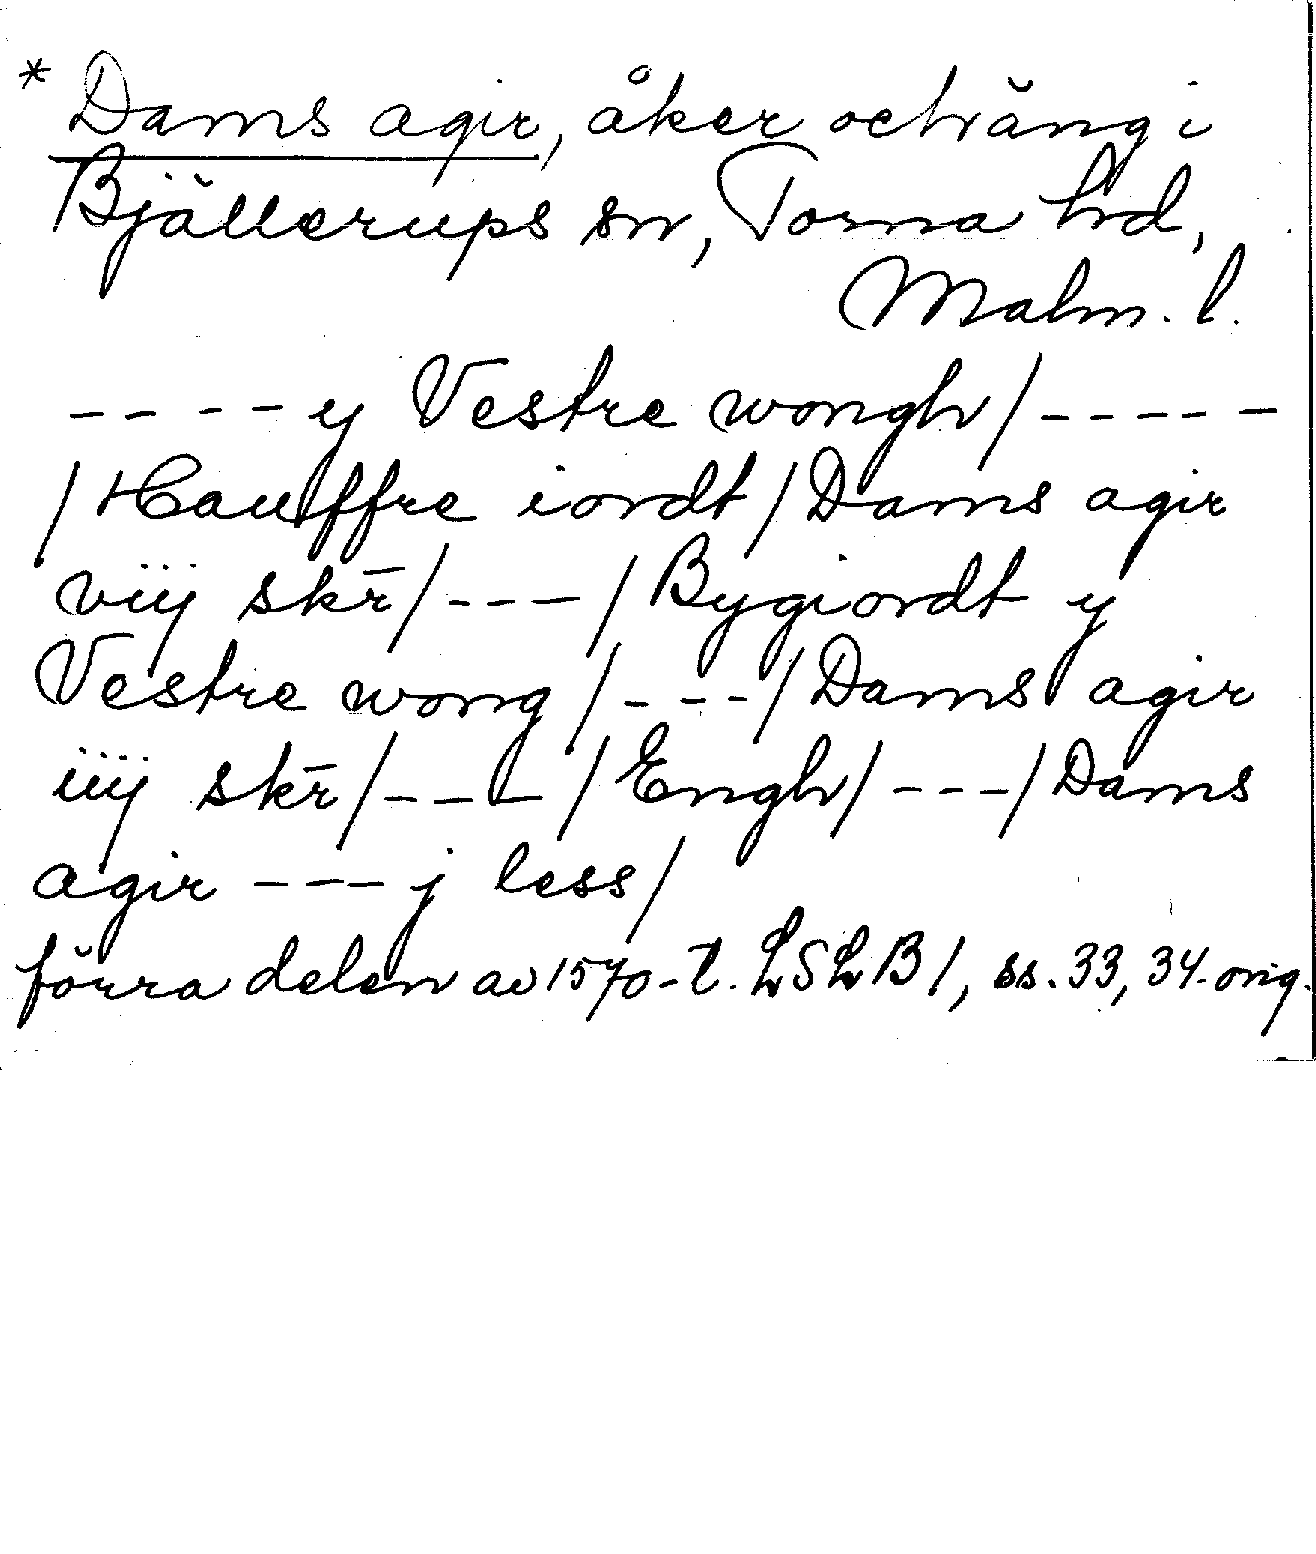 * Dams agir, åker och äng i
Bjällerups sn, Torna hd,
Malm. l.
---- y Vestre wongh/-----
/Hauffre iordt/Dams agir
viij skr̄/---/Bygiordt y
Vestre wong/---/Dams agir
iiij skr̄/---/Engh/---/Dams
agir --- j less/
förra delen av 1570-t. LSLB 1, ss. 33, 34. orig.